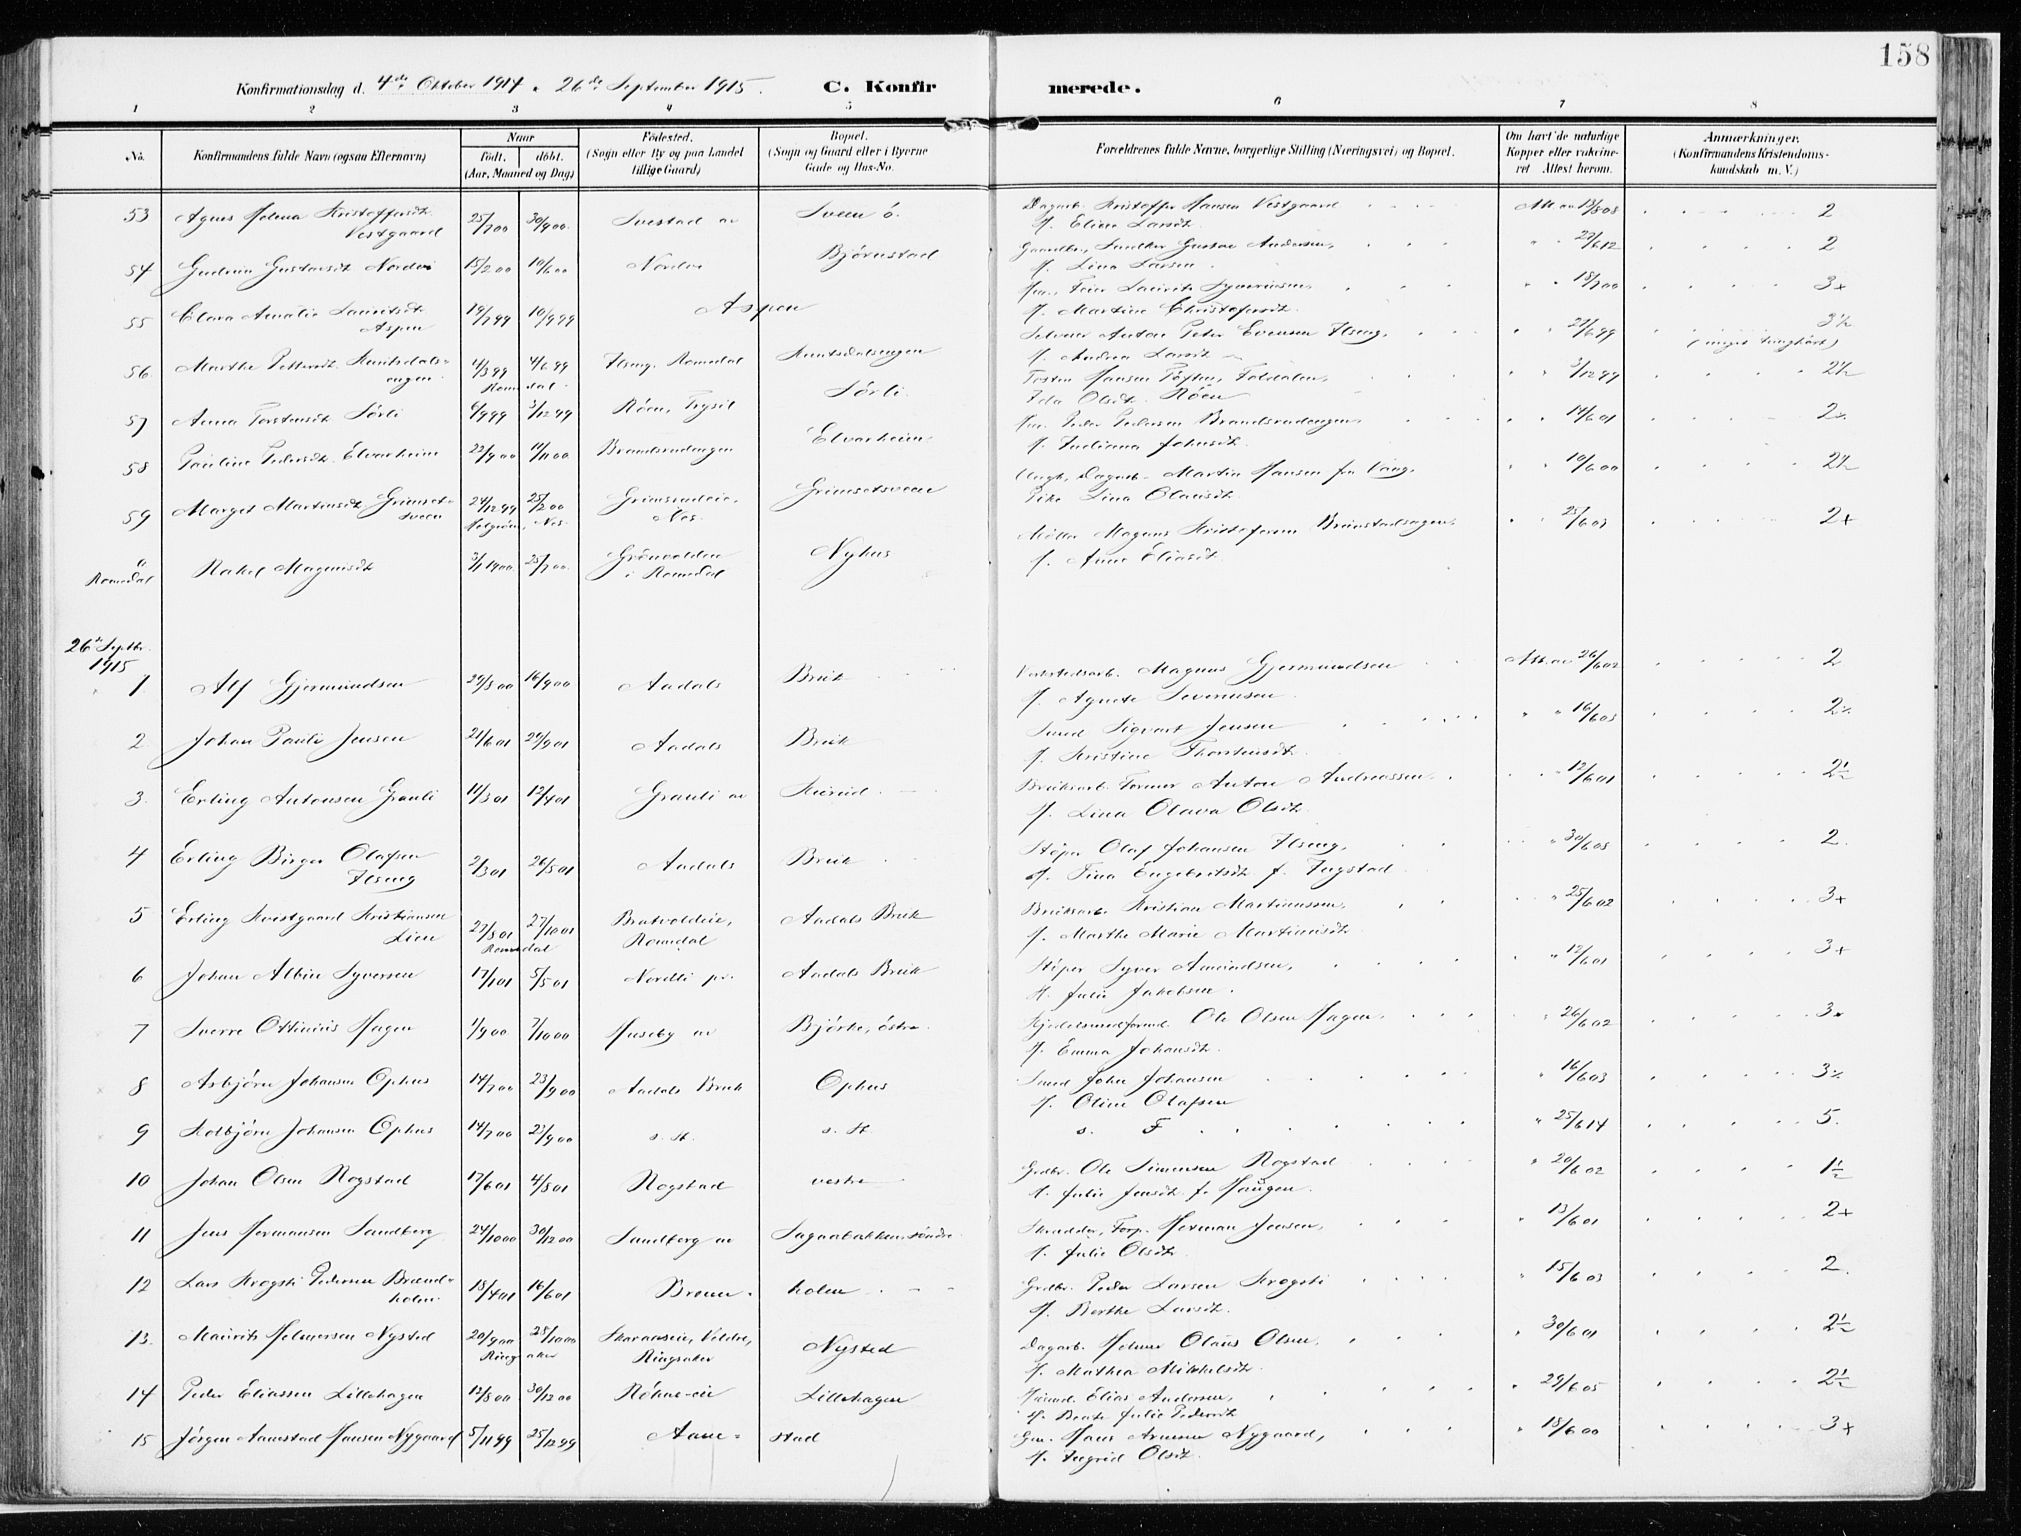 158
Konfirmationsdag d. 4de Oktober 1914 . 26de September 1915. C. Konfirmerede.
1 2 3 4 5 6 7 8
No. Konfirmandens fulde Navn (ogsaa Efternavn) Naar født. døbt. (Aar, Maaned og Dag) Fødested. (Sogn eller By og paa Landet tillige Gaard) Bopæl. (Sogn og Gaard eller i Byerne Gade og Hus-No. Forældrenes fulde Navne, borgerlige Stilling (Næringsvei) og Bopæl. Om havt de naturlige Kopper eller vaccineret Attest herom. Anmærkninger. (Konfirmandens Kristendomskundskab m. V.)
53 Agnes Helena Kristoffersdt. Vestgaard 25/7 00 30/9 00 Svestad av Sveen ö. Dagarb. Kristoffer Hansen Vestgaard Att. av 13/8 08 2
H. Eline Larsdt.
54 Gudrun Gustavsdt. Nordvi 15/2 00 10/6 00 Nordvi Björnstad Gaardbr., Snedker Gustav Andersen, 27/6 12 2
H. Lina Larsen
55 Clara Amalie Lauritsdt. Aspen 19/7 99 10/9 99 Aspen Lauritz Syversen, 18/7 00 3+
H. Martine Christofersdt.
56 Marthe Pettersdt. Kuntsdalsengen 11/3 99 4/6 99 Romedal Ilseng, Romedal Kuntsdalsengen Selveier Anton Peter Evensen Ilseng, 27/6 99 3½
H. Andrea Larsdt. (meget tunghørt)
57 Anna Torstensdt. Sörli 6/9 99 3/12 99 Röen, Trysil Sörli Torsten Hansen Foldalen, 3/12 99 2½
Ida Olsdt. Röen
58 Pauline Pedersdt. Elvarheim 22/9 00 4/11 00 Brandsrudengen Elvarheim Peder Pedersen Brandsrudengen, 14/6 01 2
H. Indiana Johnsdt.
59 Margit Martinsdt. Grimsetsveen 24/12 99 25/2 00 Nes Grimsrudeie, Nes. Grimsetsveen Ungk. Dagarb. Martin Hansen fra Vang, 10/6 00 2½
Pike Lina Olausdt.
Romedal Rakel Magnusdt. 3/1 1900 25/7 00 Grönvolden i Romedal Nyhus Möller Magnus Kristofersen Brynestadsagen, 25/6 03 2+
H. Anne Eliasdt.
26de Septbr. 1915
1 Alf Gjermundsen 29/8 00 16/9 00 Aadals Bruk Verkstedsarb. Magnus Gjermundsen Att. av 26/6 02 2
H. Agnete Severinsen
2 Johan Pauli Jensen 21/6 01 29/9 01 Aadals Bruk Smed Sigvart Jensen 16/6 03 2
H. Kristine Thorstensdt.
3. Erling Antonsen Grauli 11/3 01 12/4 01 Grauli av Kurud Bruksarb. Former Anton Andreassen 12/6 01 2½
H. Lina Olava Olsdt.
4 Erling Birger Olafsen Ilseng 2/3 01 26/5 01 Aadals Bruk Stöper Olaf Johansen Ilseng, 30/6 05 2.
H. Tina Engebretsdt. f. Ingstad
5 Erling Kvistgaard Kristiansen Lien 27/8 01 27/10 01 Romedal Bratvoldeie, Romedal Aadals Bruk Bruksarb. Kristian Martiniussen, 25/6 02 3+
H. Marthe Marie Martinusdt.
6 Johan Albin Syversen 17/1 01 5/5 01 Nordli pr. Aadals Bruk Stöper Syver Amundsen, 12/6 01 3+
H. Julie Jakobsen.
7 Sverre Ottinius Hagen 1/9 00 7/10 00 Huseby av Björke, östre Kjedelsmedformd. Ole Olsen Hagen, 26/6 02 3+
H. Emma Johansdt.
8 Asbjörn Johansen Ophus 14/7 00 23/9 00 Aadals Bruk Ophus Smed John Johansen 16/6 03 3
H. Oline Olafsen
9 Kolbjörn Johansen Ophus 14/7 00 23/9 00 s. st. s. st. s. F. 25/6 14 5.
10 Johan Olsen Rogstad 17/6 01 4/8 01 Rogstad vestre Grdbr. Ole Simensen Rogstad 20/6 02 1½
H. Julie Jensdt. f. Haugen.
11 Jens Hermansen Sandberg 24/10 00 30/12 00 Sandberg av Sagaabakken söndre Skrædder, Torp. Herman Jensen, 13/6 01 2+
H. Julie Olsdt.
12 Lars Krogsti Pedersen Brænholm 18/4 01 16/6 01 Brænholm Grdbr. Peder Larsen Krogsti 15/6 03 2.
H. Berthe Larsdt.
13. Maurits Helmersen Nysted 20/9 00 28/10 00 Ringsaker Skaraaseie, Veldre, Ringsaker Nysted Dagarb. Helmer Olaus Olsen 30/6 01 2½
H. Mathea Mikkelsdt.
14 Peder Eliassen Lillehagen 12/8 00 30/12 00 Röhne-eie Lillehagen Elias Andersen, 29/6 05 2½
H. Beate Julie Pedersdt.
15 Jörgen Aanestad Hansen Nygaard 5/11 99 25/12 99 Aanestad Hans Arnesen Nygaard, 18/6 00 3+
H. Ingrid Olsdt.